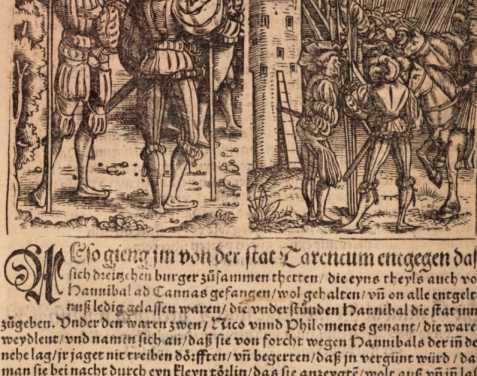 Also gieng jm von der stat Tarentum entgegen das
sich dreitzehen burger zůsammen thetten / die eyns theyls auch vo
Hannibal ad Cannas gefangen / wol gehalten / vñ on alle entgelt
nuß ledig gelassen waren / die vnderstůnden Hannibal die stat inn
zůgeben. Vnder den waren zwen / Nico vnnd Philomenes genant / die ware
weydleut / vnd namen sich an / daß sie von forcht wegen Hannibals der iñ de
nehe lag / jr jaget nit treiben dörfften / vñ begerten / daß jn vergünt würd / da
man sie bei nacht durch eyn kleyn törlin / das sie anzeygtẽ / wolt auß vñ iñ las